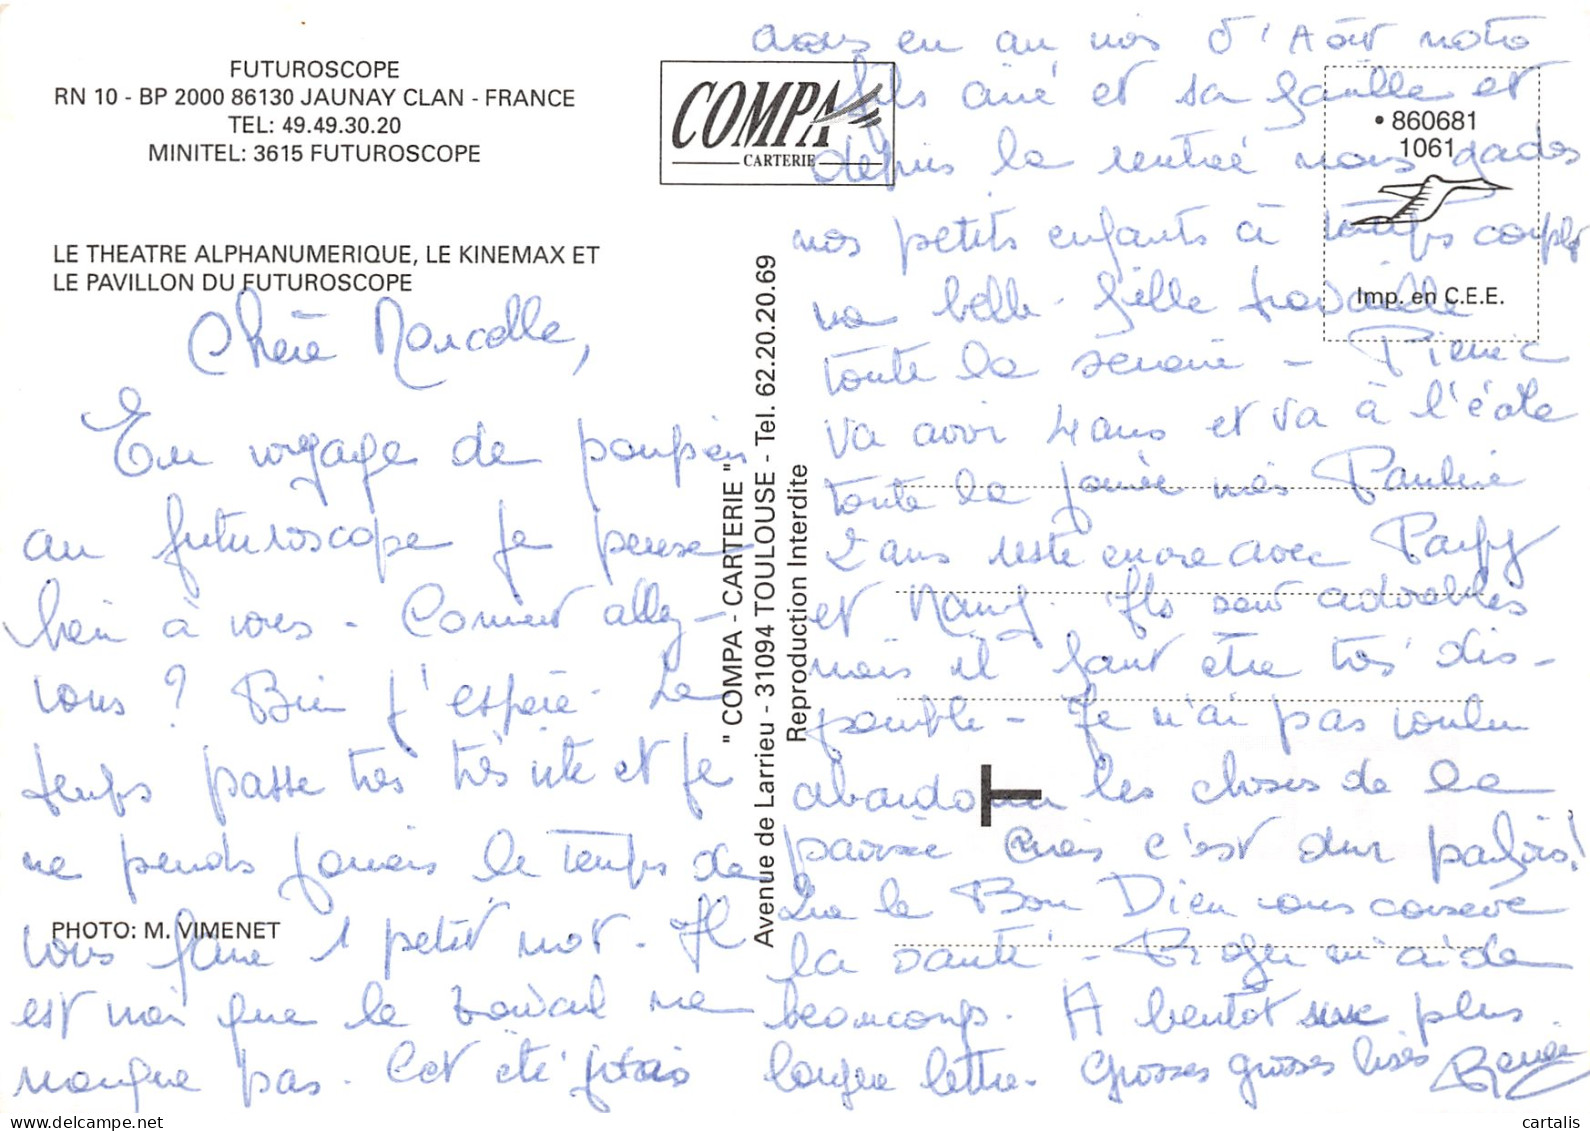 FUTUROSCOPE
RN 10 - BP 2000 86130 JAUNAY CLAN - FRANCE
TEL: 49.49.30.20
MINITEL: 3615 FUTUROSCOPE
COMPA
CARTERIE
• 860681
1061
Imp. en C.E.E.
LE THEATRE ALPHANUMERIQUE, LE KINEMAX ET
LE PAVILLON DU FUTUROSCOPE
Chère Marcelle,
En voyage de
au futuroscope je pense
bien à vous - Comment allez-
vous ? Bien j'espère - Le
temps passe très très vite et je
ne prends jamais le temps de
vous faire 1 petit mot. Il
est vrai que le travail ne
manque pas. Cet été
PHOTO: M. VIMENET
" COMPA - CARTERIE "
Avenue de Larrieu - 31094 TOULOUSE - Tel. 62.20.20.69
Reproduction Interdite
avons eu au mois d'Août notre
fils ainé et sa famille et
depuis la rentrée nous gardons
nos petits enfants à temps complet
ma belle-fille travaille
toute la semaine - Pierric
va avoir 4 ans et va à l'école
toute la journée mais Pauline
2 ans reste encore avec Papy
et Mamy. Ils sont adorables
mais il faut être très dis-
ponible - Je n'ai pas voulu
abandonner les choses de la
paroisse mais c'est dur parfois!
Que le Bon Dieu vous conserve
la santé - Roger m'aide
beaucoup. A bientôt une plus
longue lettre. Grosses grosses bises Renée
T
cartalis
www.delcampe.net